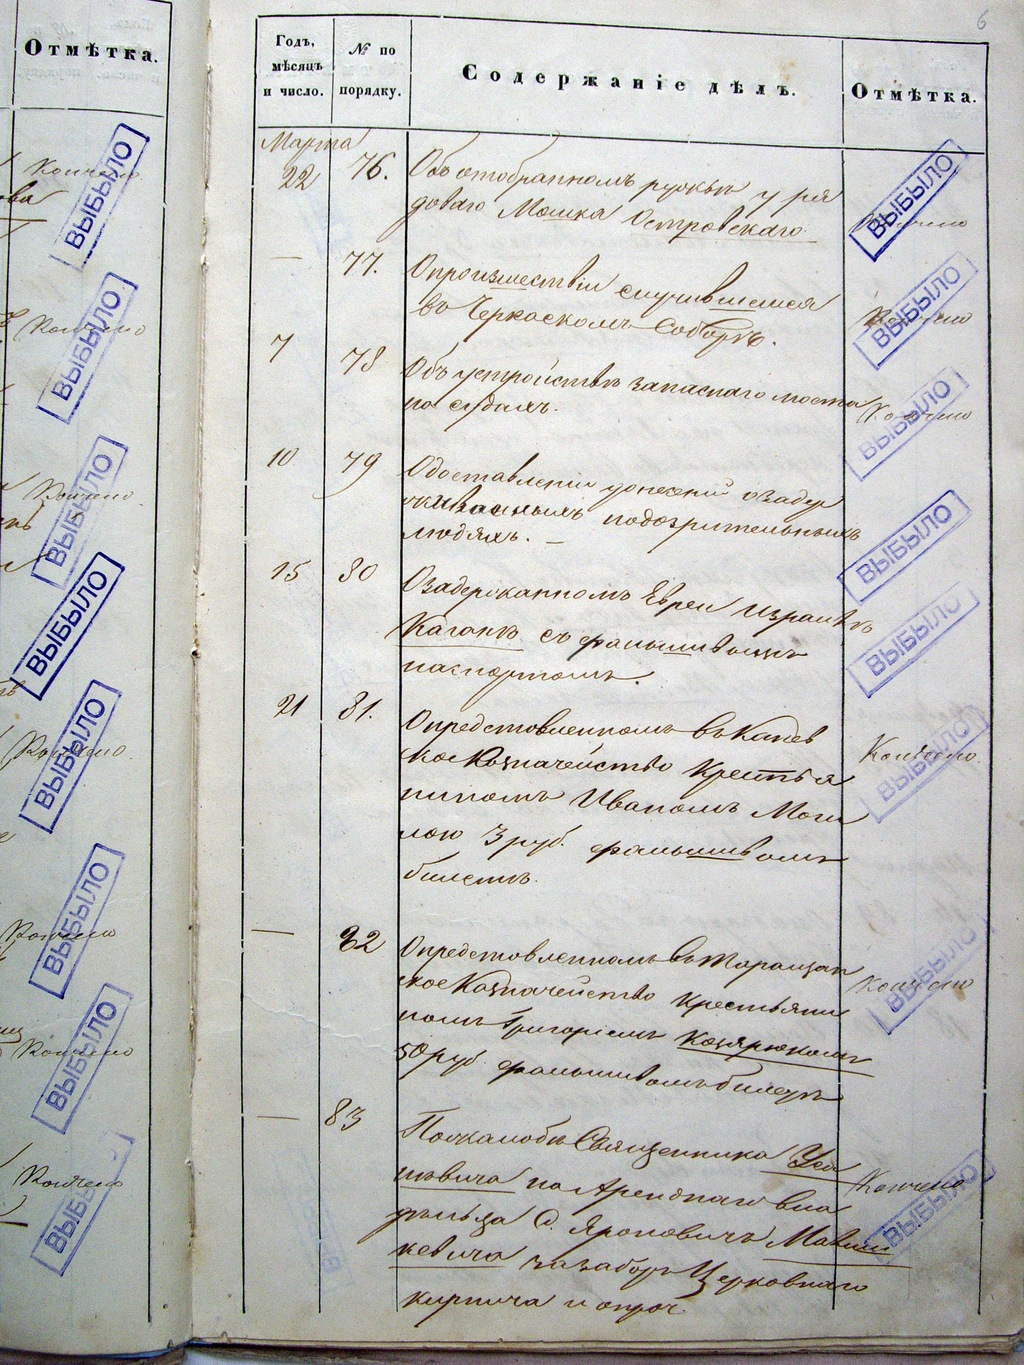 Отмѣтка.
Кончено
ВЫБЫЛО
Кончено
ВЫБЫЛО
Кончено.
ВЫБЫЛО
ВЫБЫЛО
Кончено.
ВЫБЫЛО
Кончено
ВЫБЫЛО
Кончено
ВЫБЫЛО
Кончено
ВЫБЫЛО
6
Годъ, мѣсяцъ и число.
№ по порядку.
Содержаніе дѣлъ.
Отмѣтка.
Марта
22 76. Объ отобранномъ ружьѣ у ря
доваго Мошка Островскаго
Кончено
ВЫБЫЛО
— 77. О произшествіи случившемся
въ Черкаскомъ Соборѣ.
Кончено
ВЫБЫЛО
7 78 Объ устройствѣ запаснаго моста
на судахъ.
Кончено
ВЫБЫЛО
10 79 О доставленіи донесеній о задер
живаемыхъ подозрительныхъ
людяхъ. —
ВЫБЫЛО
15 80 О задержанномъ Евреи Израилѣ
Каганѣ съ фальшивымъ
паспортомъ.
ВЫБЫЛО
21 81. О представленномъ въ Канев
ское Казначейство Крестья
ниномъ Иваномъ Моги
лою 3 руб. фальшивомъ
билетѣ.
Кончено.
ВЫБЫЛО
— 82 О представленномъ въ Таращан
ское Казначейство Крестьяни
номъ Григоріемъ
50 руб. фальшивомъ билетѣ
Кончено
ВЫБЫЛО
— 83 По жалобѣ Священника
на Аренднаго вла
дѣльца с. Яроповичъ
за заборъ Церковнаго
кирпича и проч
Кончено
ВЫБЫЛО